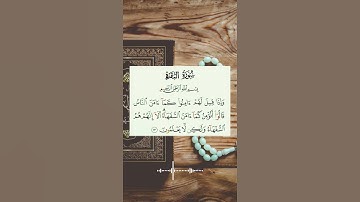 سُورَةُ البَقَرَةِ
بِسْمِ اللَّهِ الرَّحْمَٰنِ الرَّحِيمِ
وَإِذَا قِيلَ لَهُمْ ءَامِنُوا۟ كَمَآ ءَامَنَ ٱلنَّاسُ
قَالُوٓا۟ أَنُؤْمِنُ كَمَآ ءَامَنَ ٱلسُّفَهَآءُ ۗ أَلَآ إِنَّهُمْ هُمُ
ٱلسُّفَهَآءُ وَلَٰكِن لَّا يَعْلَمُونَ ١٣